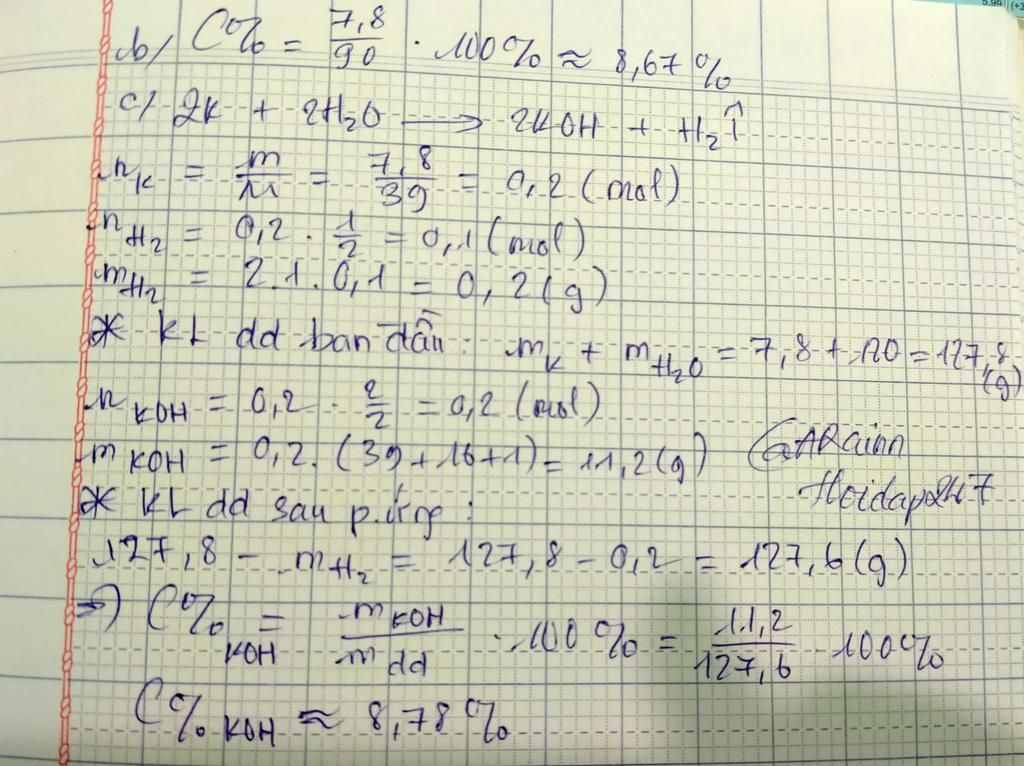 b/ C% = 7,8/90 . 100% ≈ 8,67%
c/ 2K + 2H₂O ⟶ 2KOH + H₂↑
n_K = m/M = 7,8/39 = 0,2 (mol)
n_H₂ = 0,2 . 1/2 = 0,1 (mol)
m_H₂ = 2.1.0,1 = 0,2 (g)
* KL dd ban đầu: m_K + m_H₂O = 7,8 + 120 = 127,8 (g)
n_KOH = 0,2 . 2/2 = 0,2 (mol)
m_KOH = 0,2.(39+16+1) = 11,2 (g)
Hoidap247
* KL dd sau p.ứng:
127,8 - m_H₂ = 127,8 - 0,2 = 127,6 (g)
=> C%_KOH = m_KOH/m_dd . 100% = 11,2/127,6 100%
C%_KOH ≈ 8,78%